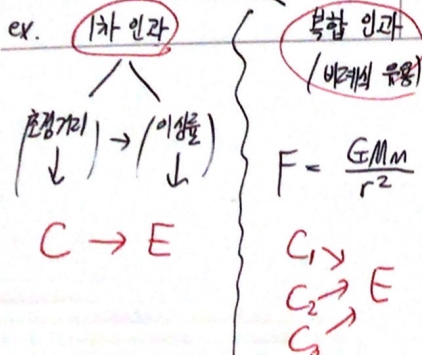 ex. 1차 인과
(초점거리 ↓) → (이심률 ↓)
C → E
복합 인과
(비례식 유용)
F = GMm / r²
C₁ ↘
C₂ → E
C₃ ↗